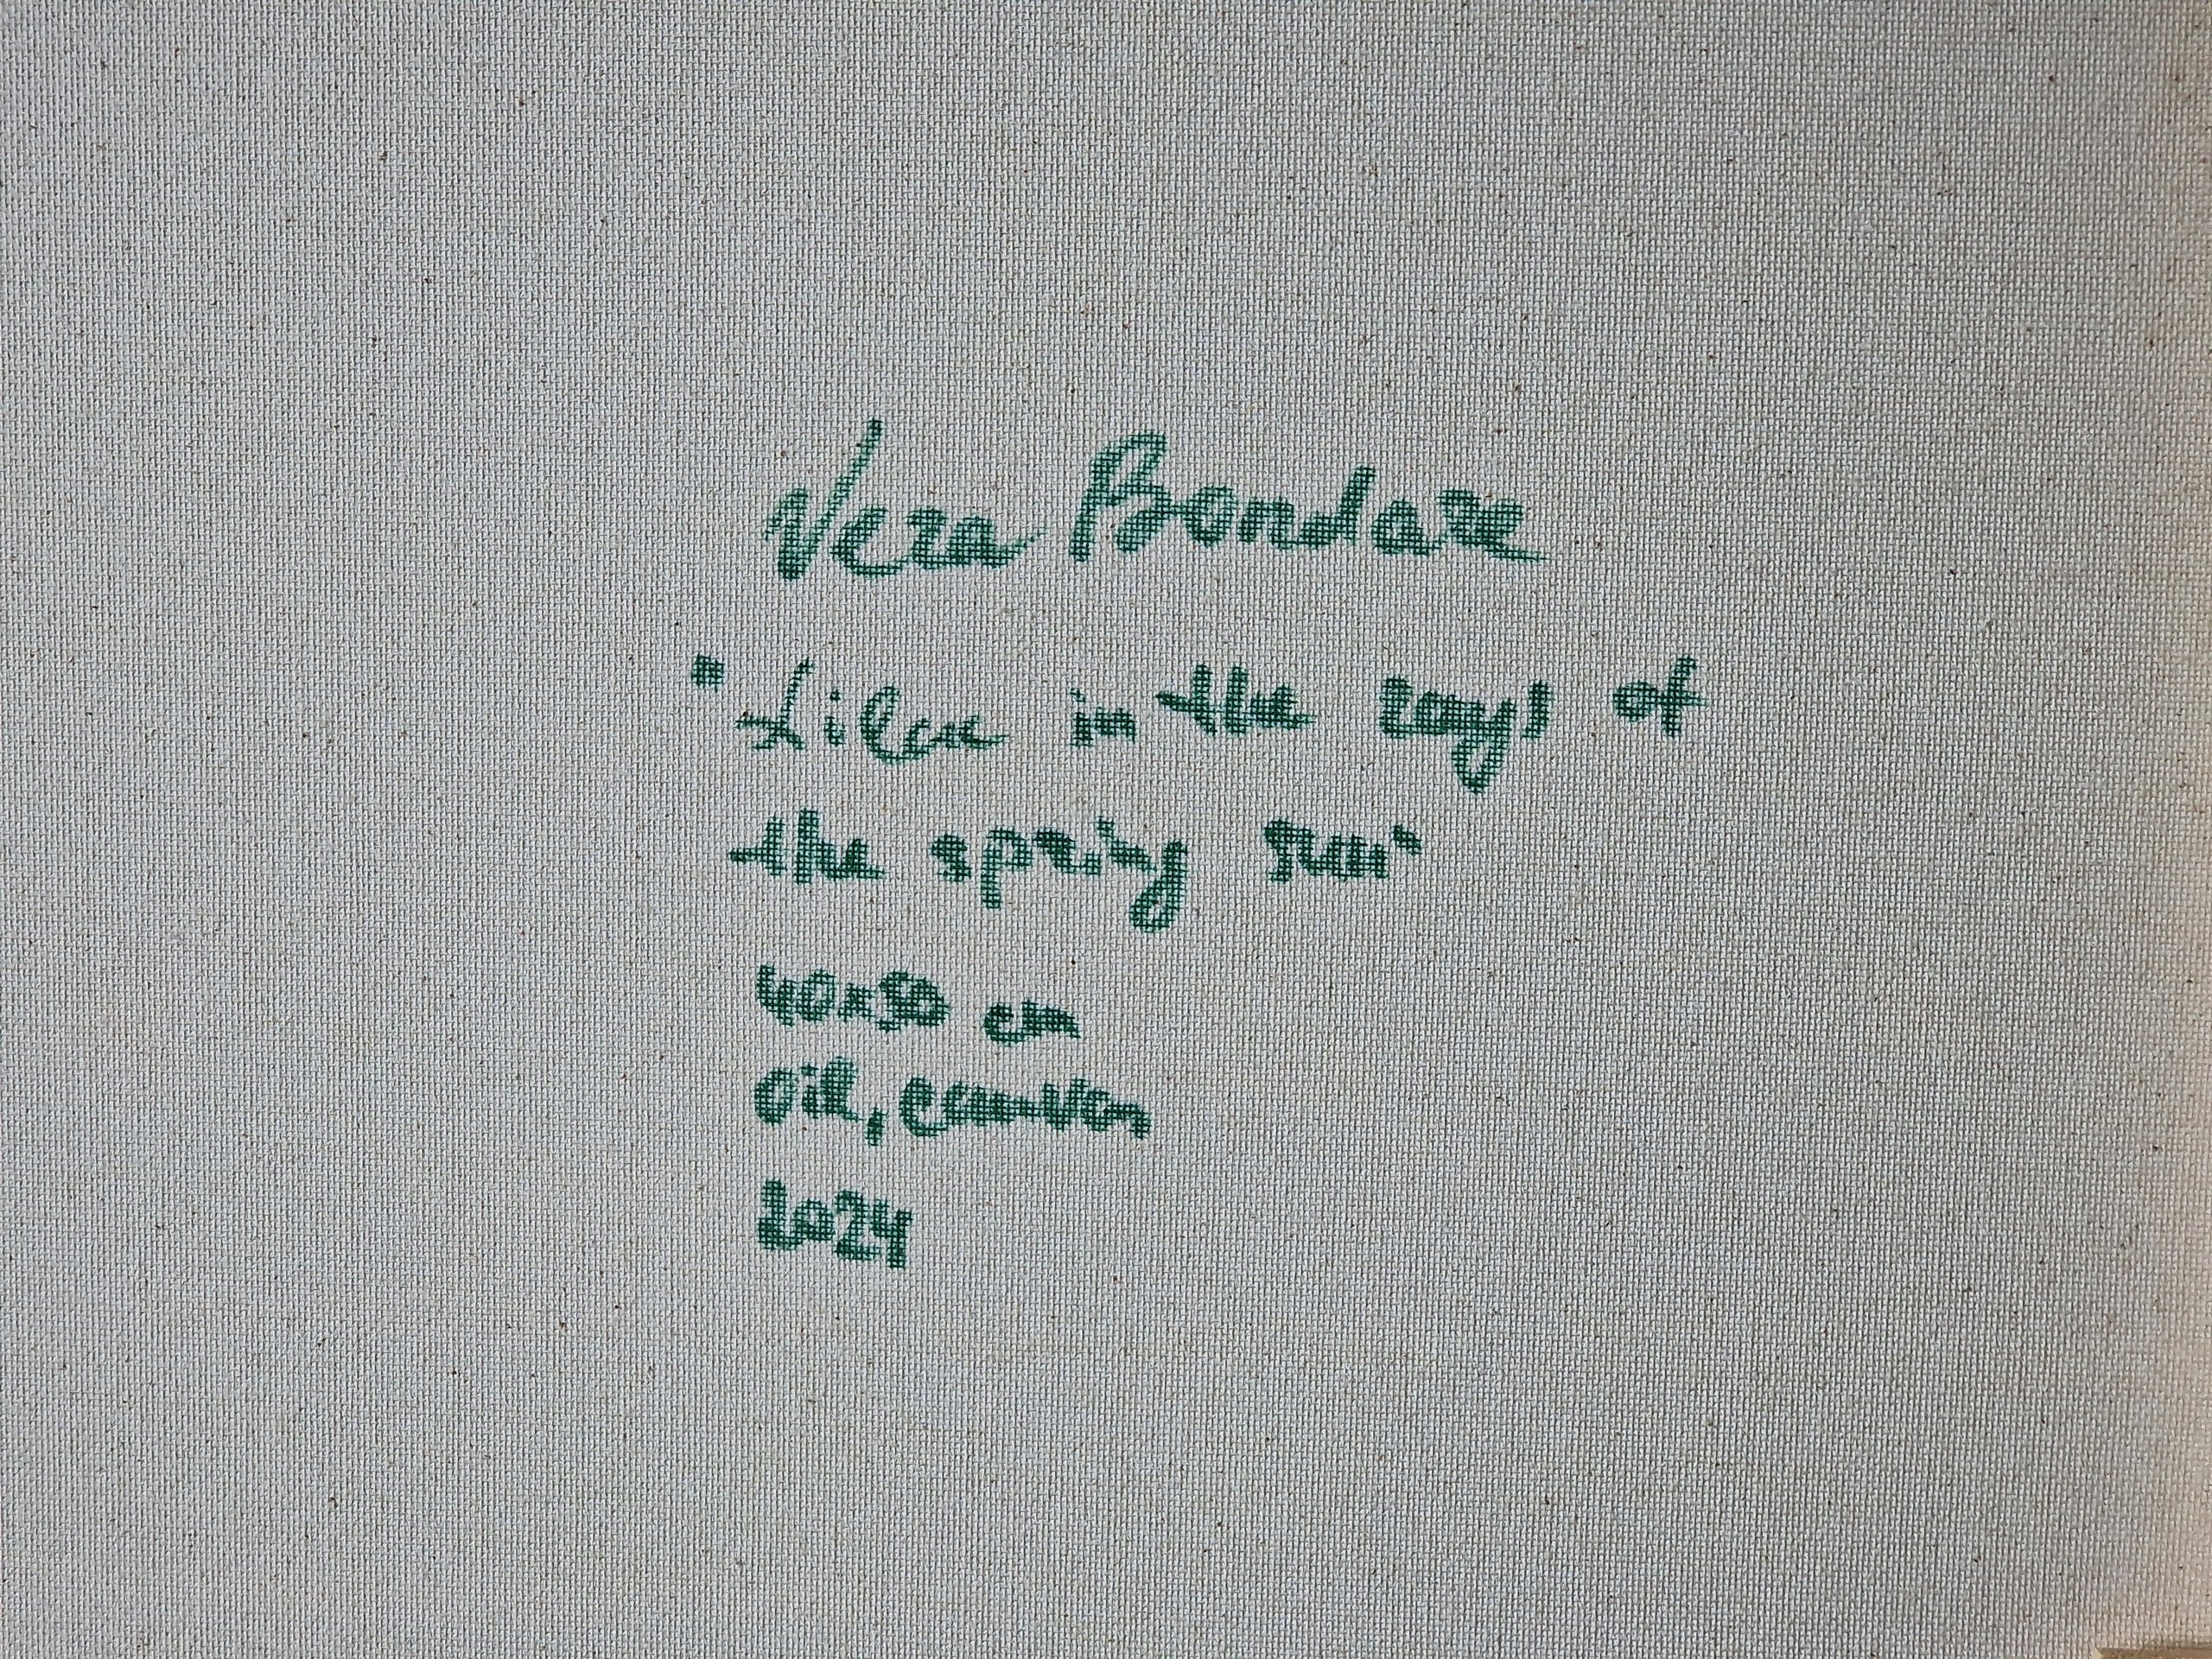 Vera Bondare
"Lilac in the rays of
the spring sun"
40x50 cm
oil, canvas
2024